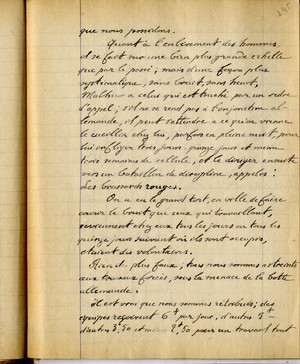 que nous possédons.
Quant à l'enlèvement des hommes,
il se fait sur une bien plus grande échelle
que par le passé; mais d'une façon plus
systématique, sans bruit, sans heurt,
Malheur à celui qui est touché par un ordre
d'appel; s'il ne se rend pas à l'injonction al-
lemande, il peut s'attendre à ce qu'on vienne
le cueillir chez lui, parfois en pleine nuit, pour
lui infliger trois jours, quinze jours et même
trois semaines de cellule, et le diriger ensuite
vers un bataillon de discipline, appelés:
Les brassards rouges.
On a eu le grand tort, en ville de faire
courir le bruit que ceux qui travaillant,
reviennent chez eux tous les jours ou tous les
quinze jours suivant où ils sont occupés,
étaient des volontaires.
Rien de plus faux, tous nous sommes astreints
aux travaux forcés, sous la menace de la botte
allemande!
Il est vrai que nous sommes rétribués; des
équipes reçoivent 6 par jour, d'autres 5
d'autres 3,50 et même 2,50 pour un travail tout